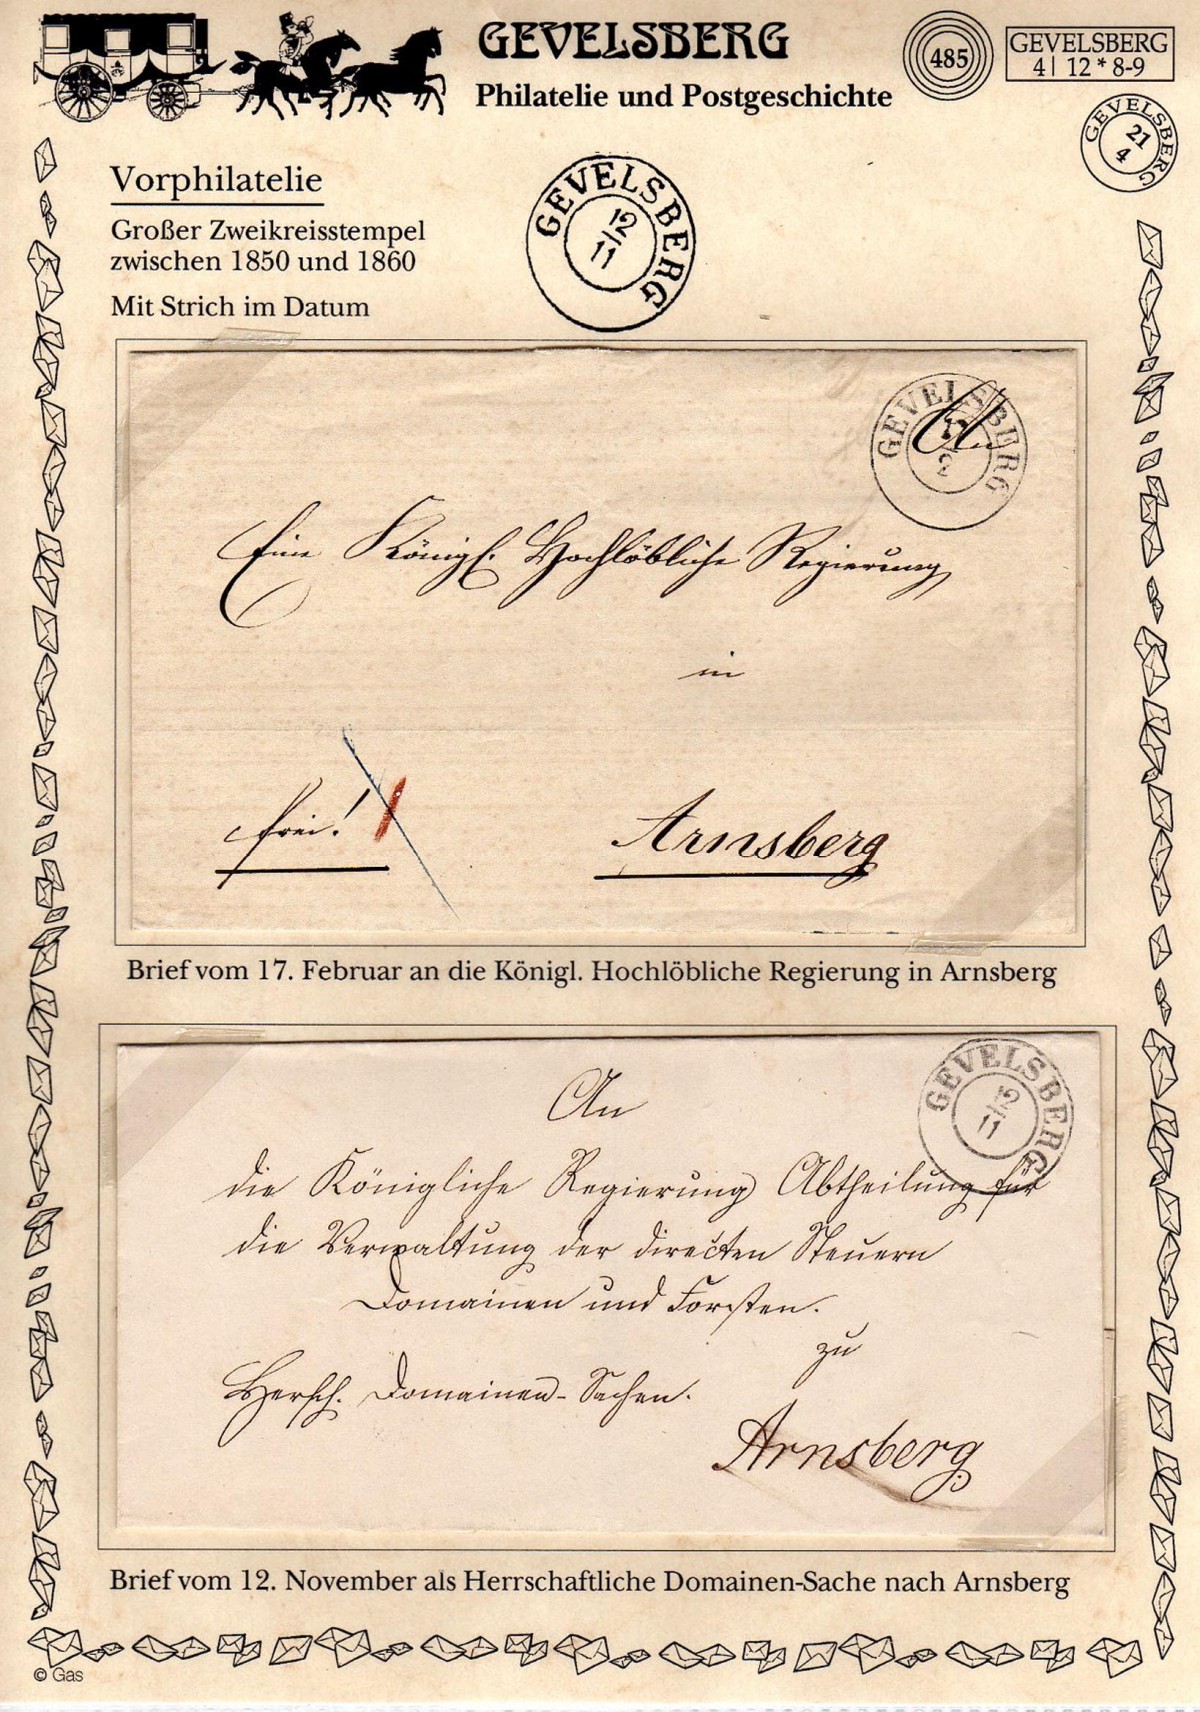 GEVELSBERG
Philatelie und Postgeschichte
485
GEVELSBERG
4| 12 * 8-9
GEVELSBERG
21
4
Vorphilatelie
Großer Zweikreisstempel
zwischen 1850 und 1860
Mit Strich im Datum
GEVELSBERG
12
11
GEVELSBERG
17
2
An
Eine Königl. Hochlöbliche Regierung
in
frei!
Arnsberg
Brief vom 17. Februar an die Königl. Hochlöbliche Regierung in Arnsberg
GEVELSBERG
12
11
An
die Königliche Regierung Abtheilung für
die Verwaltung der directen Steuern
Domainen und Forsten.
zu
Herrsch. Domainen-Sachen.
Arnsberg
Brief vom 12. November als Herrschaftliche Domainen-Sache nach Arnsberg
© Gas